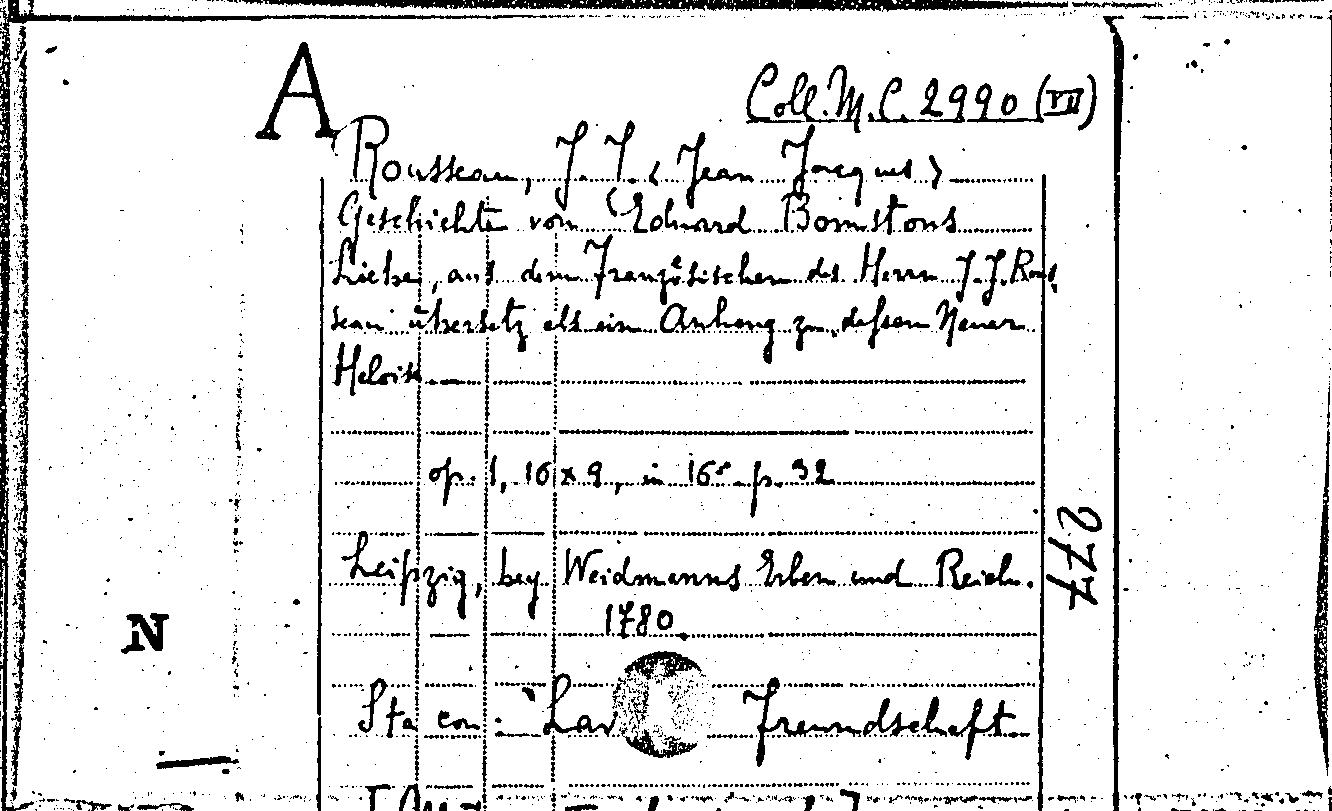 A
Coll. M. C. 2990 (VII)
Rousseau, J. J. < Jean Jacques >
Geschichte von Eduard Bomstons
Liebe, aus dem Französischen des Herrn J. J. Rous
seau übersetz als ein Anhang zu deßen Neuer
Heloise
op. 1, 16 x 9, in 16° p. 32
277
Leipzig, bey Weidmanns Erben und Reich.
1780
N
Sta con: Freundschaft